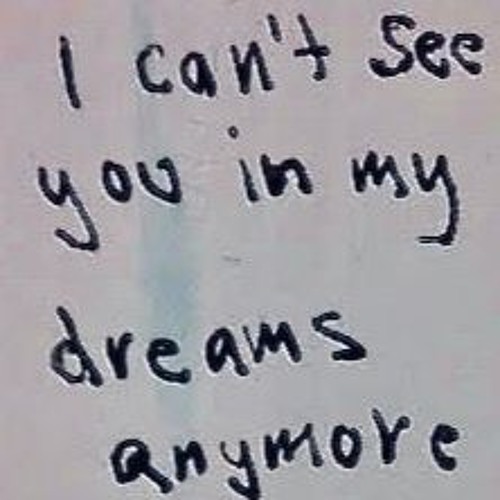 I can't See
you in my
dreams
anymore